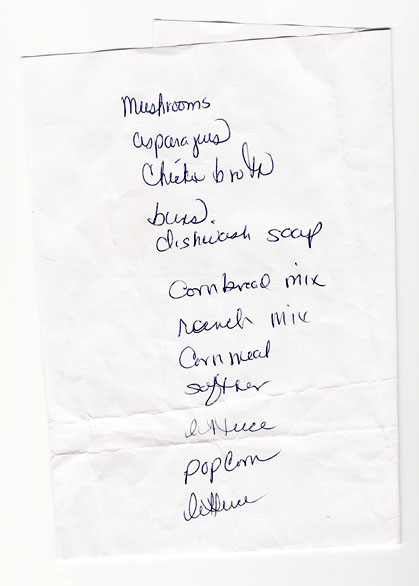 Mushrooms
asparagus
Chicken broth
buns.
dishwash soap
Cornbread mix
ranch mix
Cornmeal
softner
lettuce
popCorn
lettuce